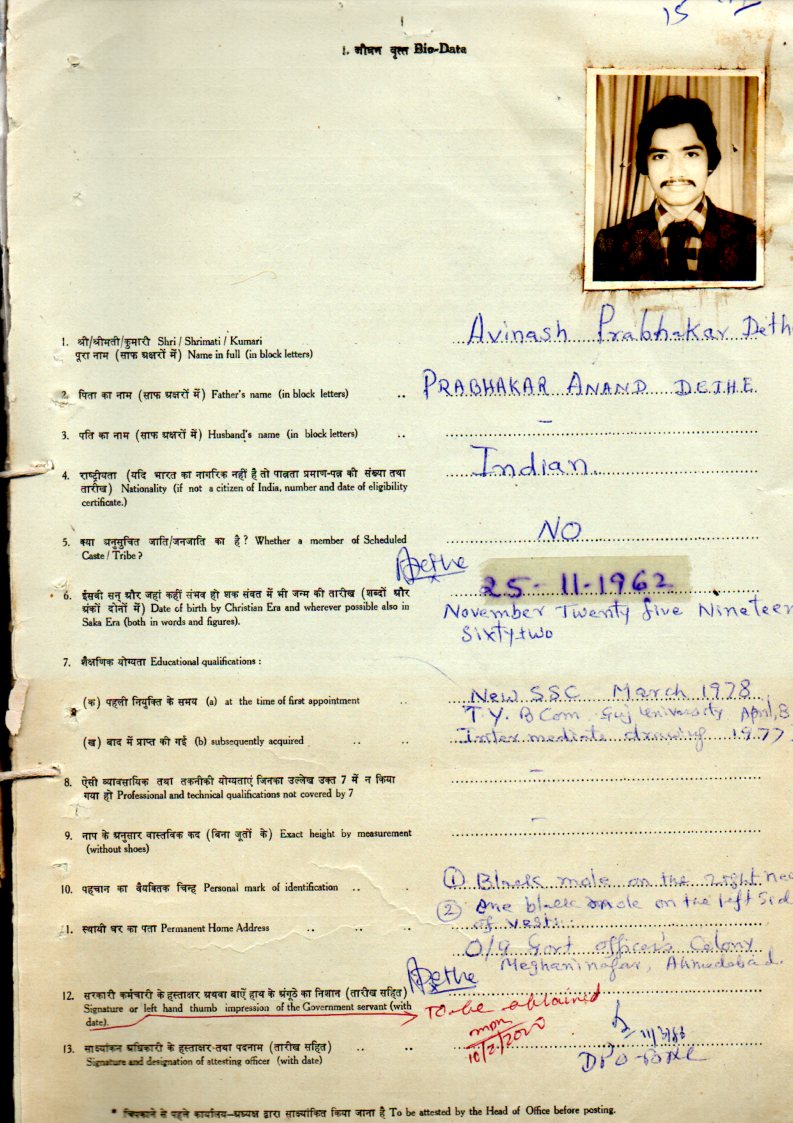 15
1. जीवन वृत्त Bio-Data
1. श्री/श्रीमती/कुमारी Shri / Shrimati / Kumari
पूरा नाम (साफ अक्षरों में) Name in full (in block letters)
Avinash Prabhakar Deth
2. पिता का नाम (साफ अक्षरों में) Father's name (in block letters) ..
PRABHAKAR ANAND DETHE
3. पति का नाम (साफ अक्षरों में) Husband's name (in block letters) ..
–
4. राष्ट्रीयता (यदि भारत का नागरिक नहीं है तो पात्रता प्रमाण-पत्र की संख्या तथा
तारीख) Nationality (if not a citizen of India, number and date of eligibility
certificate.)
Indian.
5. क्या अनुसुचित जाति/जनजाति का है ? Whether a member of Scheduled
Caste / Tribe ?
NO
Dethe
6. ईसवी सन् और जहां कहीं संभव हो शक संवत में भी जन्म की तारीख (शब्दों और
अंकों दोनों में) Date of birth by Christian Era and wherever possible also in
Saka Era (both in words and figures).
25-11-1962
November Twenty five Nineteen
Sixty two
7. शैक्षणिक योग्यता Educational qualifications :
(क) पहली नियुक्ति के समय (a) at the time of first appointment ..
New SSC March 1978
T.Y. B Com. Guj University April, 8
(ख) बाद में प्राप्त की गई (b) subsequently acquired .. ..
Intermediate drawing 1977
8. ऐसी व्यावसायिक तथा तकनीकी योग्यताएं जिनका उल्लेख उक्त 7 में न किया
गया हो Professional and technical qualifications not covered by 7
–
9. नाप के अनुसार वास्तविक कद (बिना जूतों के) Exact height by measurement
(without shoes)
–
10. पहचान का वैयक्तिक चिन्ह Personal mark of identification .. .
① Black mole on the right nec
② One black mole on the left sid
of
1. स्थायी घर का पता Permanent Home Address .. .. ..
O/9 Govt officer's Colony
Meghaninagar, Ahmedabad.
Dethe
12. सरकारी कर्मचारी के हस्ताक्षर अथवा बाएँ हाथ के अंगूठे का निशान (तारीख सहित)
Signature or left hand thumb impression of the Government servant (with
date).
To be obtained
10/2/2020
13. साक्ष्यांकन अधिकारी के हस्ताक्षर-तथा पदनाम (तारीख सहित) .. ..
Signature and designation of attesting officer (with date)
DPO
* चिपकाने से पहले कार्यालय—अध्यक्ष द्वारा साक्ष्यांकित किया जाना है To be attested by the Head of Office before posting.